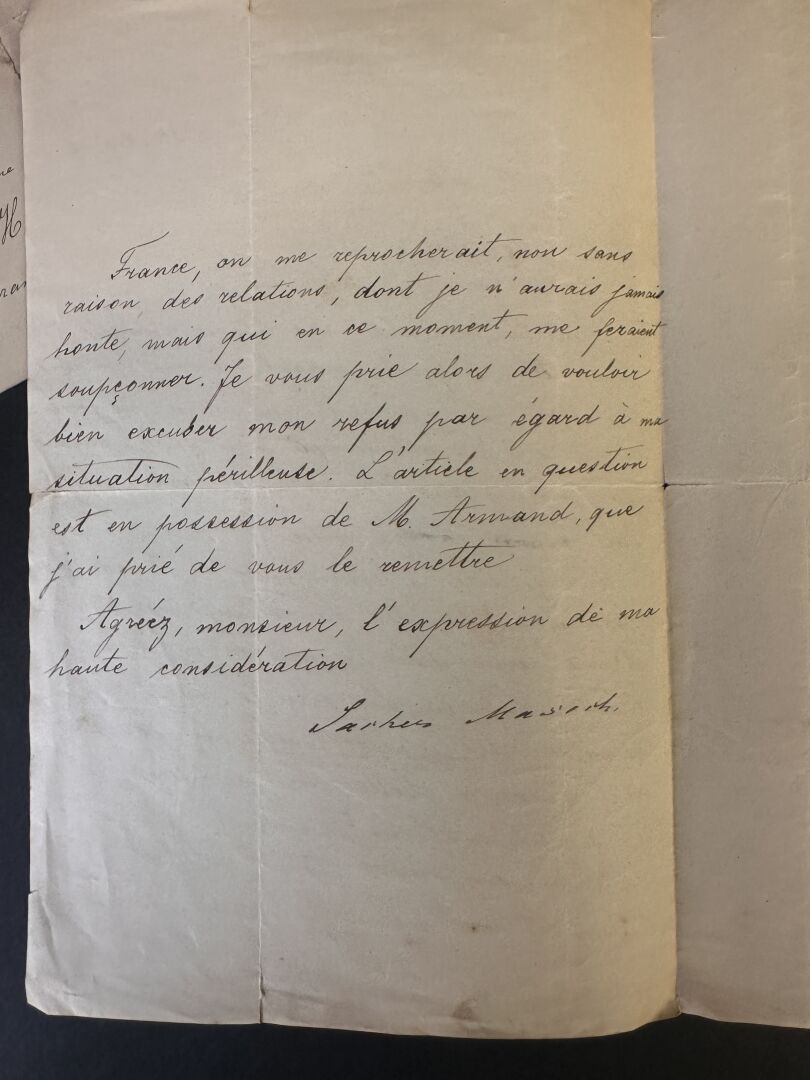 France, on me reprocherait, non sans
raison, des relations, dont je n'aurais jamais
honte, mais qui en ce moment, me feraient
soupçonner. Je vous prie alors de vouloir
bien excuser mon refus par égard à ma
situation périlleuse. L'article en question
est en possession de M. Armand, que
j'ai prié de vous le remettre
Agréez, monsieur, l'expression de ma
haute considération
Sacher Masoch.